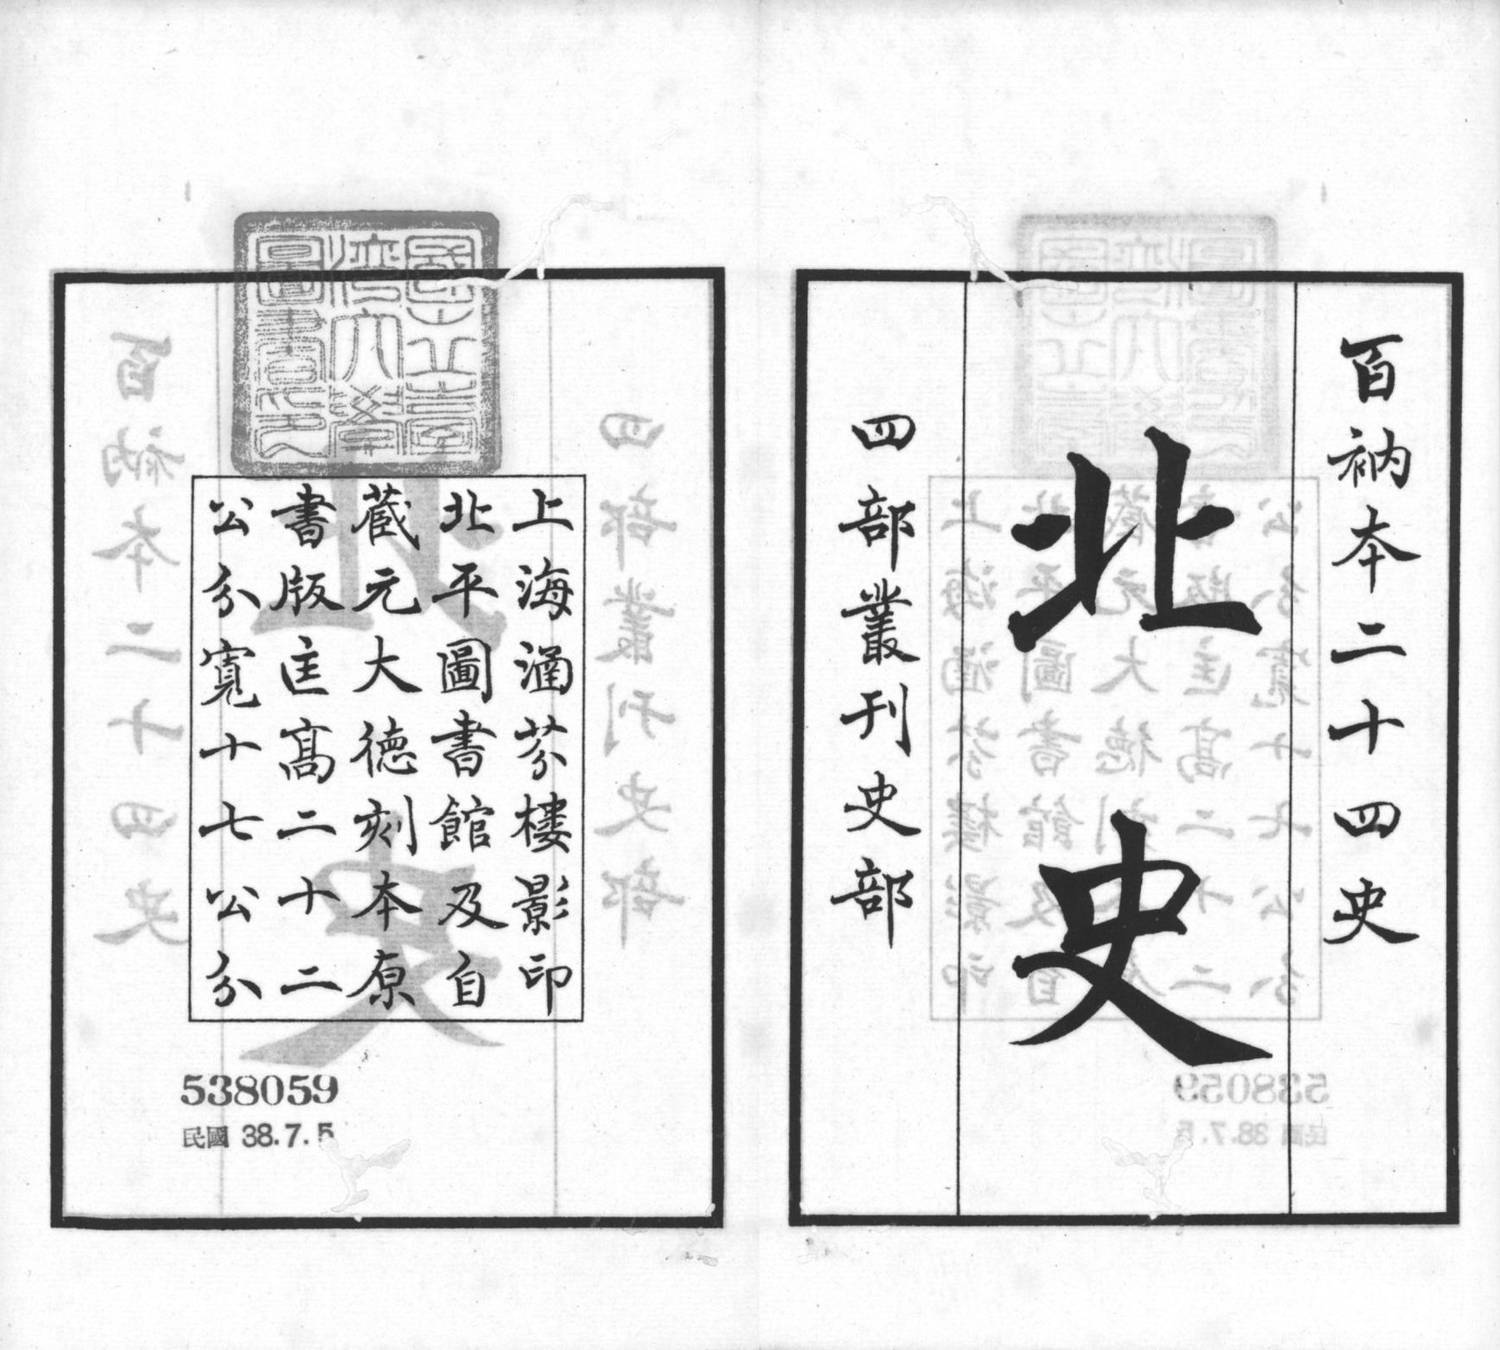 百衲本二十四史
北史
四部叢刊史部
國立臺
灣大學
圖書印
上海涵芬樓影印
北平圖書館及自
藏元大德刻本原
書版匡高二十二
公分寬十七公分
538059
民國 38.7.5